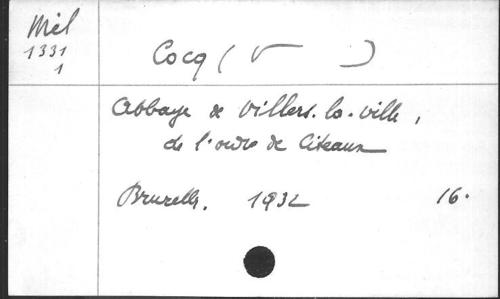 Mél
1331
1
Cocq (V )
Abbaye de Villers-la-Ville,
de l'ordre de Citeaux
Bruxelles. 1932 16.